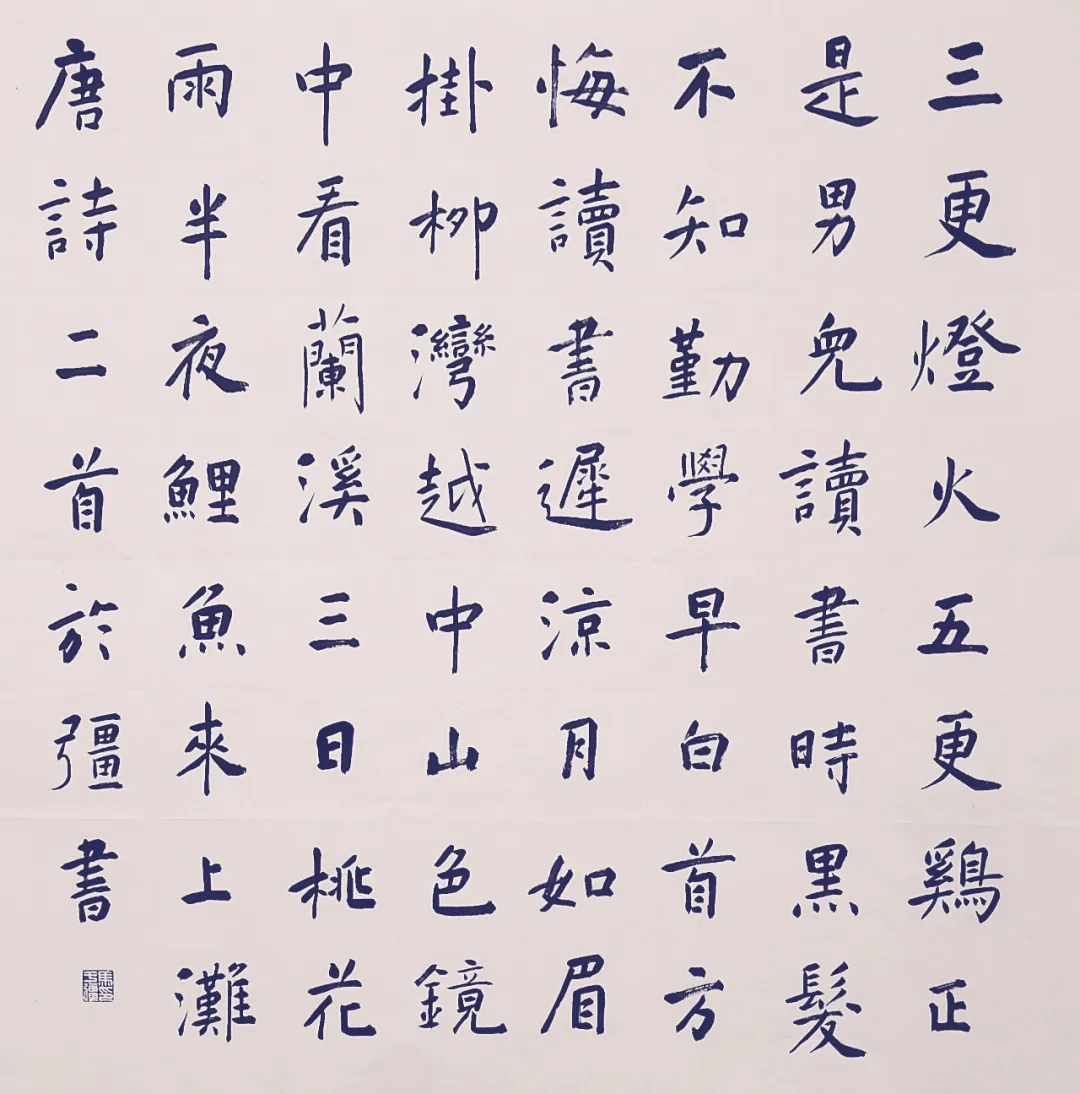 三更燈火五更鷄正
是男兒讀書時黑髮
不知勤學早白首方
悔讀書遲涼月如眉
掛柳灣越中山色鏡
中看蘭溪三日桃花
雨半夜鯉魚來上灘
唐詩二首於彊書